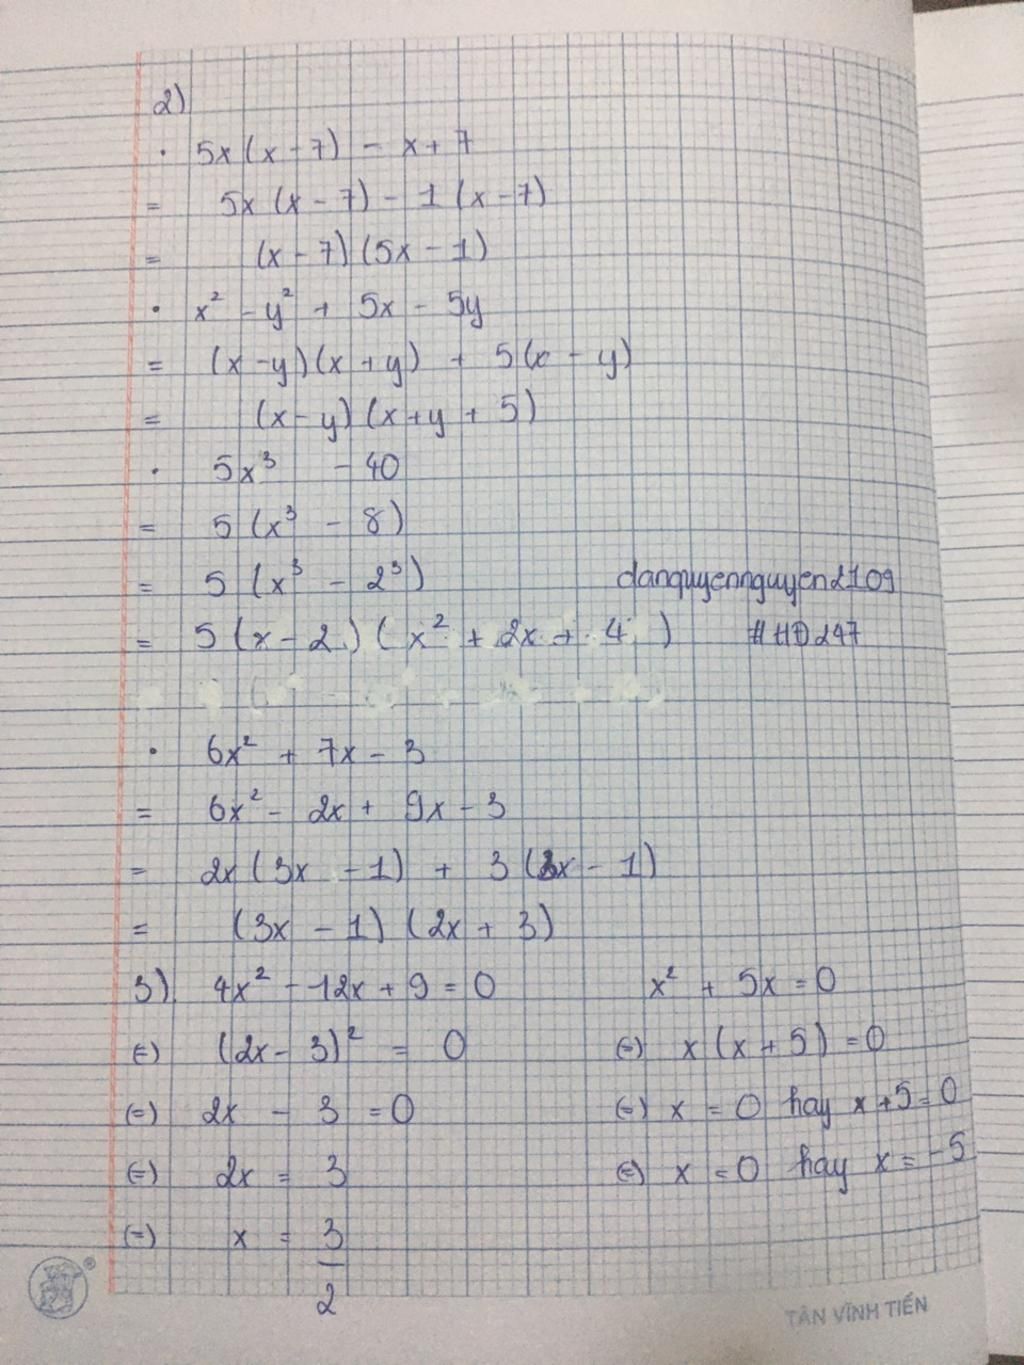 2)
· 5x(x - 7) - x + 7
= 5x (x - 7) - 1 (x - 7)
= (x - 7) (5x - 1)
· x² - y² + 5x - 5y
= (x - y)(x + y) + 5(x - y)
= (x - y) (x + y + 5)
· 5x³ - 40
= 5 (x³ - 8)
= 5 (x³ - 2³) danquyennguyen2109
= 5 (x - 2) (x² + 2x + 4) #HĐ247
· 6x² + 7x - 3
= 6x² - 2x + 9x - 3
= 2x (3x - 1) + 3 (3x - 1)
= (3x - 1) (2x + 3)
3) 4x² - 12x + 9 = 0 x² + 5x = 0
(=) (2x - 3)² = 0 (=) x (x + 5) = 0
(=) 2x - 3 = 0 (=) x = 0 hay x + 5 = 0
(=) 2x = 3 (=) x = 0 hay x = -5
(=) x = 3/2
TÂN VĨNH TIẾN